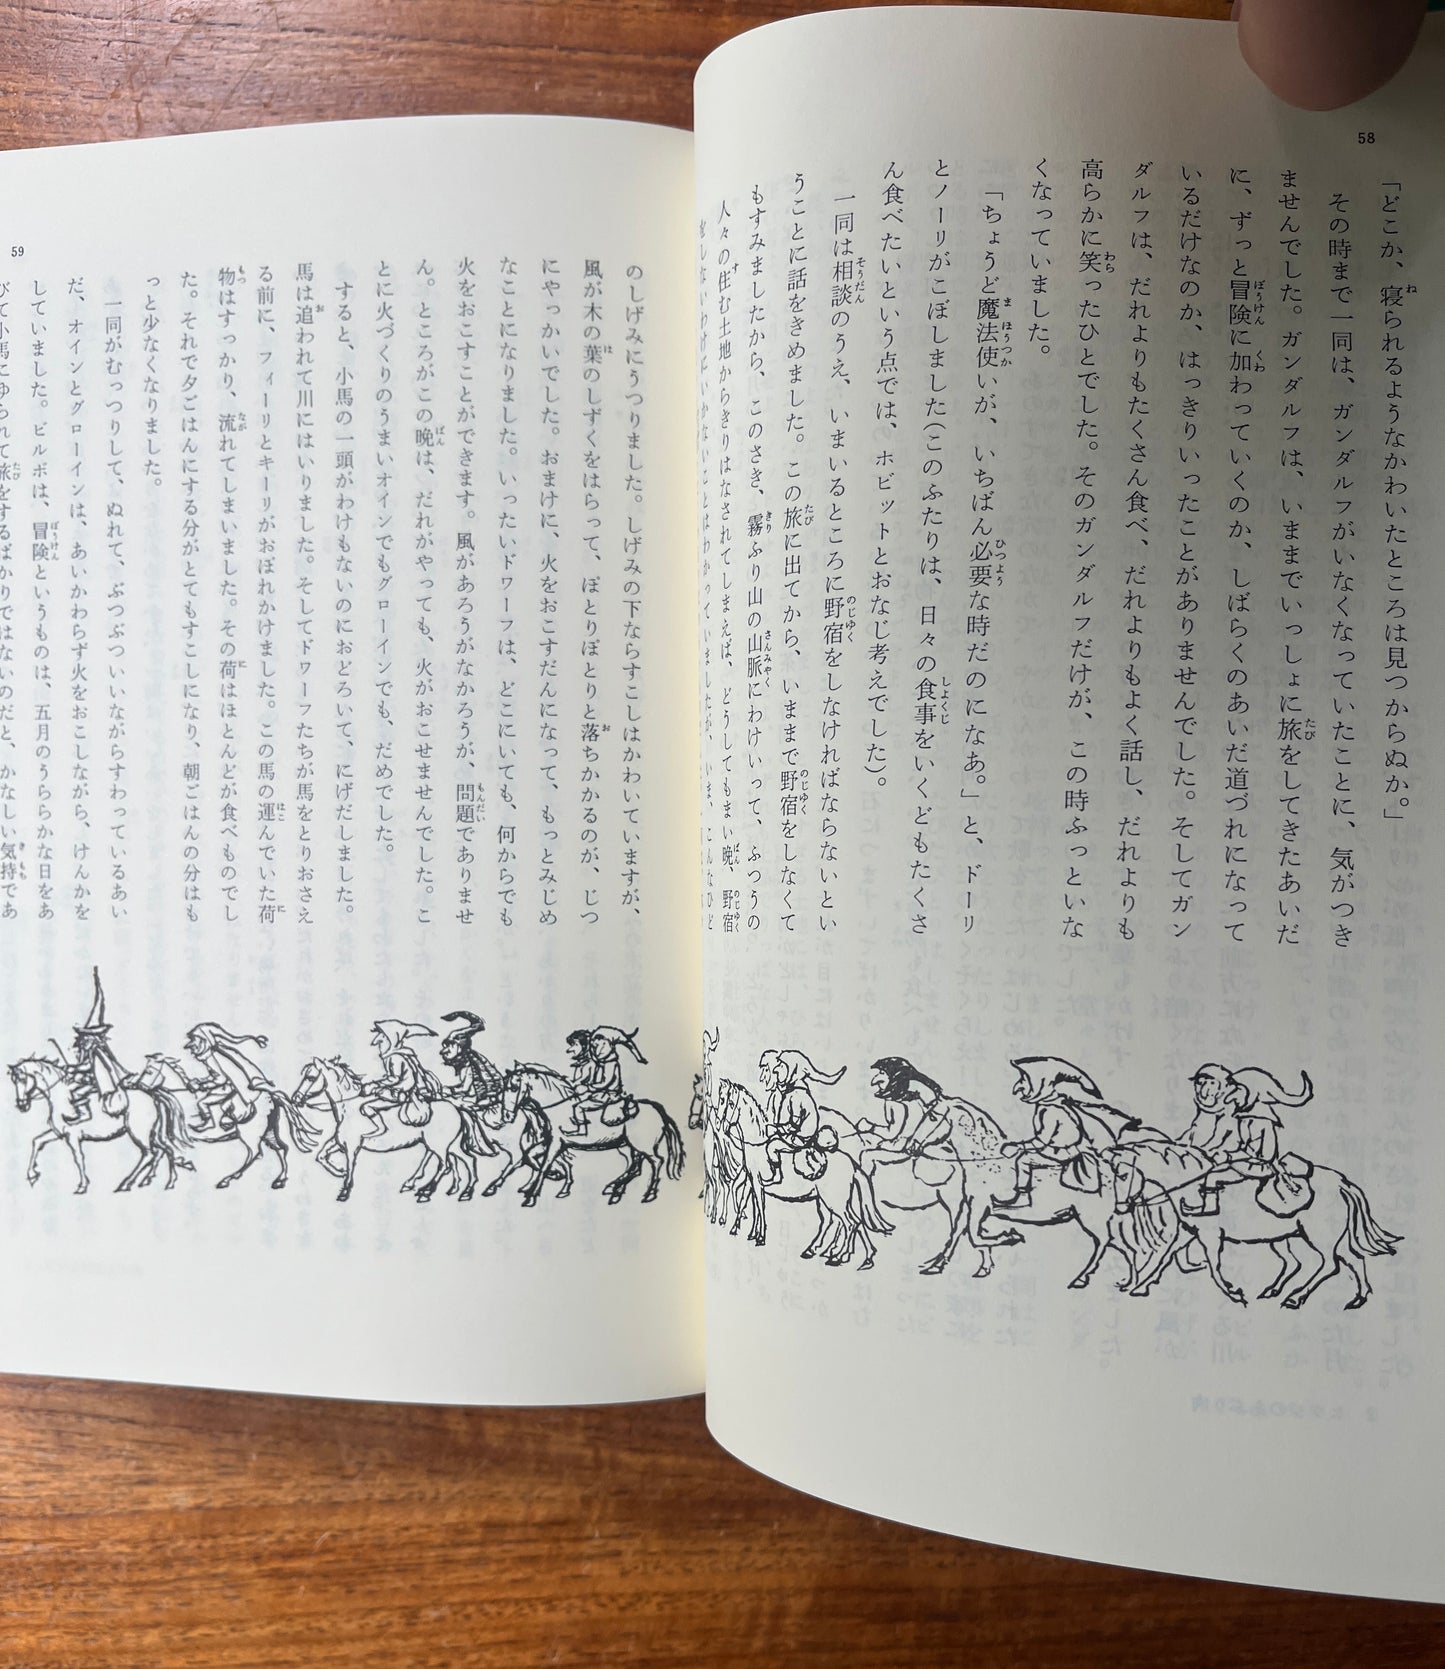 58
「どこか、寝られるようなかわいたところは見つからぬか。」
その時まで一同は、ガンダルフがいなくなっていたことに、気がつき
ませんでした。ガンダルフは、いままでいっしょに旅をしてきたあいだ
に、ずっと冒険に加わっていくのか、しばらくのあいだ道づれになって
いるだけなのか、はっきりいったことがありませんでした。そしてガン
ダルフは、だれよりもたくさん食べ、だれよりもよく話し、だれよりも
高らかに笑ったひとでした。そのガンダルフだけが、この時ふっといな
くなっていました。
「ちょうど魔法使いが、いちばん必要な時だのになあ。」と、ドーリ
とノーリがこぼしました（このふたりは、日々の食事をいくどもたくさ
ん食べたいという点では、ホビットとおなじ考えでした）。
一同は相談のうえ、いまいるところに野宿をしなければならないとい
うことに話をきめました。この旅に出てから、いままで野宿をしなくて
もすみましたから、このさき、霧ふり山の山脈にわけいって、ふつうの
人々の住む土地からきりはなされてしまえば、どうしてもまい晩、野宿
しないわけにいかないことはわかっていましたが、いま、こんなひど
59
のしげみにうつりました。しげみの下ならすこしはかわいていますが、
風が木の葉のしずくをはらって、ぽとりぽとりと落ちかかるのが、じつ
にやっかいでした。おまけに、火をおこすだんになって、もっとみじめ
なことになりました。いったいドワーフは、どこにいても、何からでも
火をおこすことができます。風があろうがなかろうが、問題でありませ
ん。ところがこの晩は、だれがやっても、火がおこせませんでした。こ
とに火づくりのうまいオインでもグローインでも、だめでした。
すると、小馬の一頭がわけもないのにおどろいて、にげだしました。
馬は追われて川にはいりました。そしてドワーフたちが馬をとりおさえ
る前に、フィーリとキーリがおぼれかけました。この馬の運んでいた荷
物はすっかり、流れてしまいました。その荷はほとんどが食べものでし
た。それで夕ごはんにする分がとてもすこしになり、朝ごはんの分はも
っと少なくなりました。
一同がむっつりして、ぬれて、ぶつぶついいながらすわっているあい
だ、オインとグローインは、あいかわらず火をおこしながら、けんかを
していました。ビルボは、冒険というものは、五月のうららかな日をあ
びて小馬にゆられて旅をするばかりではないのだと、かなしい気持であ